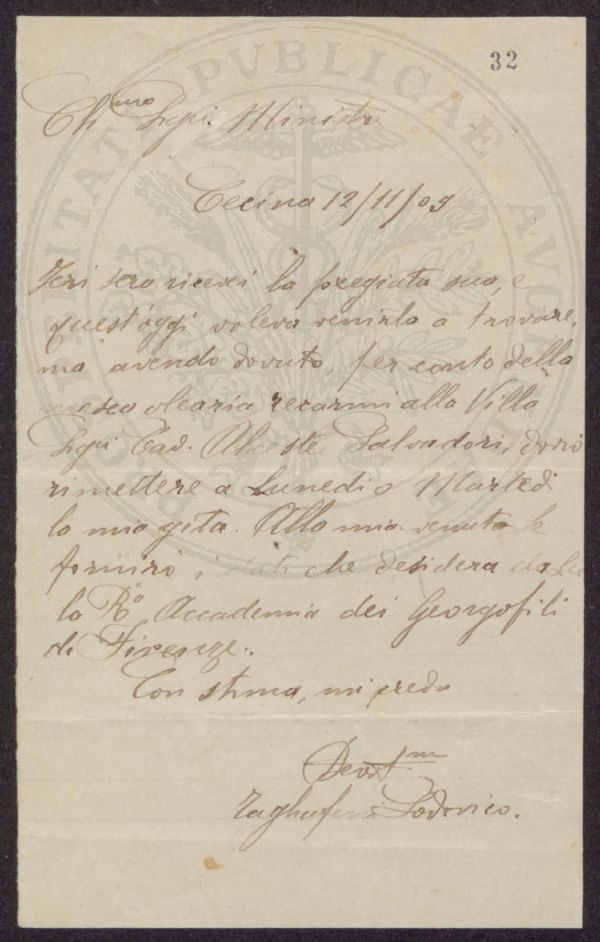 32
Ch.mo Sigr. Ministro
Cecina 12/11/09
Ieri sera ricevei la pregiata sua, e
quest'oggi voleva venirla a trovare,
ma avendo dovuto, per conto della
mosca olearia recarmi alla Villa
Sigr. Cav. Alceste Salvadori, dovrò
rimettere a Lunedì o Martedì
la mia gita. Alla mia venuta le
fornirò i dati che desidera
la Ra Accademia dei Georgofili
di Firenze.
Con stima, mi creda
Devotm
Lodovico.
PROSPERITATI PVBLICAE AVGENDAE